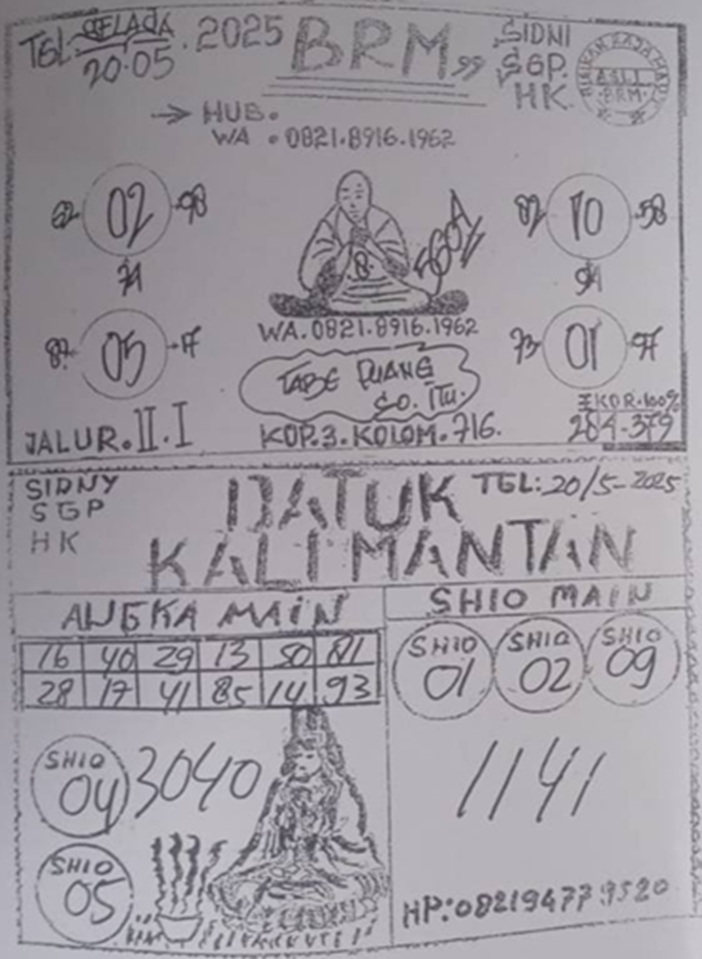 TGL: SELASA
20.05. 2025
BRM
SIDNI
SGP.
HK.
ASLI
BRM
HUB.
WA . 0821.8916.1962
62 02 98
74
82 10 58
94
8
WA.0821.8916.1962
05 17
73 01 97
TABE PUANG
SO. ITU.
EKOR.100%
284-379
JALUR.II.I
KOP.3.KOLOM.716.
SIDNY
SGP
HK
DATUK
KALIMANTAN
TGL:20/5-2025
ANGKA MAIN
16 40 29 13 50
28 17 41 85 14 93
SHIO MAIN
SHIO 01
SHIO 02
SHIO 09
SHIO 04
3040
SHIO 05
1141
HP:082194779520